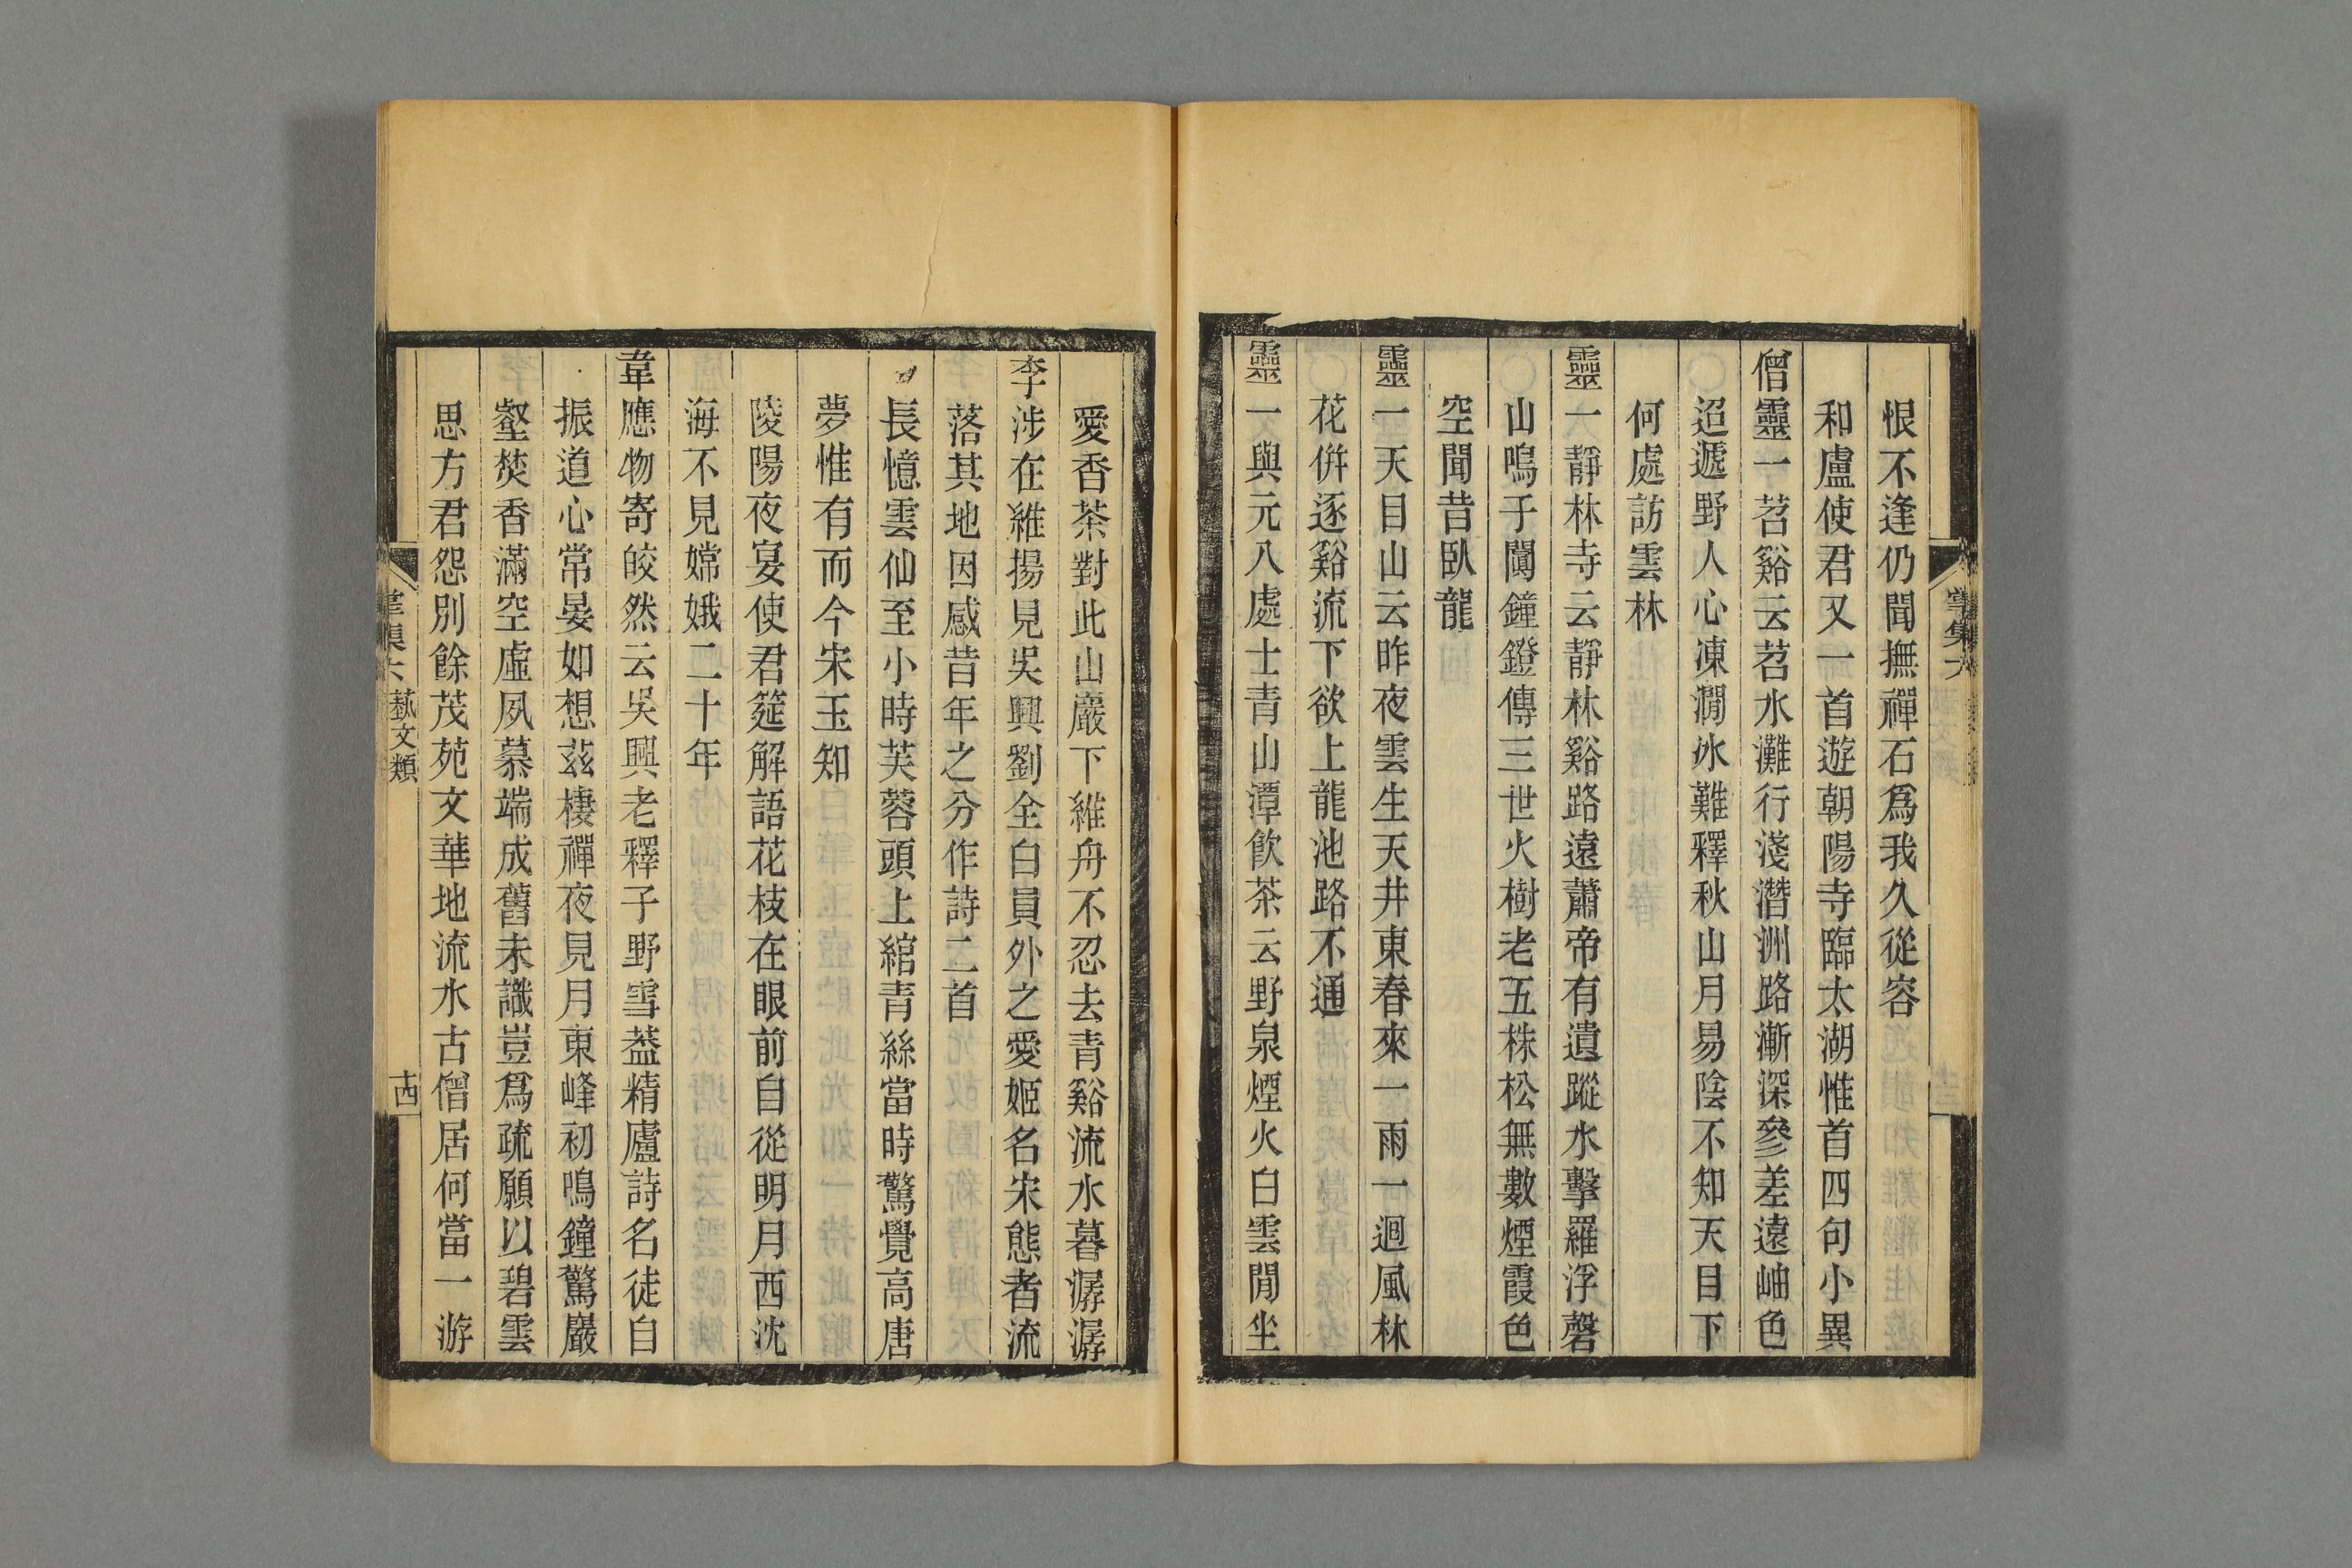 恨不逢仍聞撫禪石爲我久從容
和盧使君又一首遊朝陽寺臨太湖惟首四句小異
僧靈一苕谿云苕水灘行淺潛洲路漸深參差遠岫色
迢遞野人心凍澗冰難釋秋山月易陰不知天目下
何處訪雲林
靈一靜林寺云靜林谿路遠蕭帝有遺蹤水擊羅浮磬
山鳴于闐鐘鐙傳三世火樹老五株松無數煙霞色
空聞昔臥龍
靈一天目山云昨夜雲生天井東春來一雨一迴風林
花倂逐谿流下欲上龍池路不通
靈一與元八處士青山潭飮茶云野泉煙火白雲閒坐
愛香茶對此山巖下維舟不忍去青谿流水暮潺潺
李涉在維揚見吳興劉全白員外之愛姬名宋態者流
落其地因感昔年之分作詩二首
長憶雲仙至小時芙蓉頭上綰青絲當時驚覺高唐
夢惟有而今宋玉知
陵陽夜宴使君筵解語花枝在眼前自從明月西沈
海不見嫦娥二十年
韋應物寄皎然云吳興老釋子野雪葢精廬詩名徒自
振道心常晏如想茲棲禪夜見月東峰初鳴鐘驚巖
壑焚香滿空虛夙慕端成舊未識豈爲疏願以碧雲
思方君怨別餘茂苑文華地流水古僧居何當一游
藝文類
十四